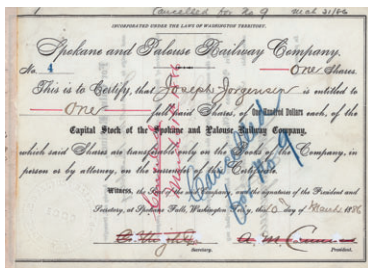 Cancelled for No 9 Mch 31/86
INCORPORATED UNDER THE LAWS OF WASHINGTON TERRITORY.
Spokane and Palouse Railway Company.
No. 4 One Shares
This is to Certify, that Joseph Jorgensen is entitled to
One full paid Shares, of One Hundred Dollars each, of the
Capital Stock of the Spokane and Palouse Railway Company,
which said Shares are transferable only on the Books of the Company, in
person or by attorney, on the surrender of this Certificate.
Witness, the Seal of the Company, and the signature of the President and
Secretary, at Spokane Falls, Washington Territory, this 10 day of March 1886
Secretary. President.
Cancelled
No. 9